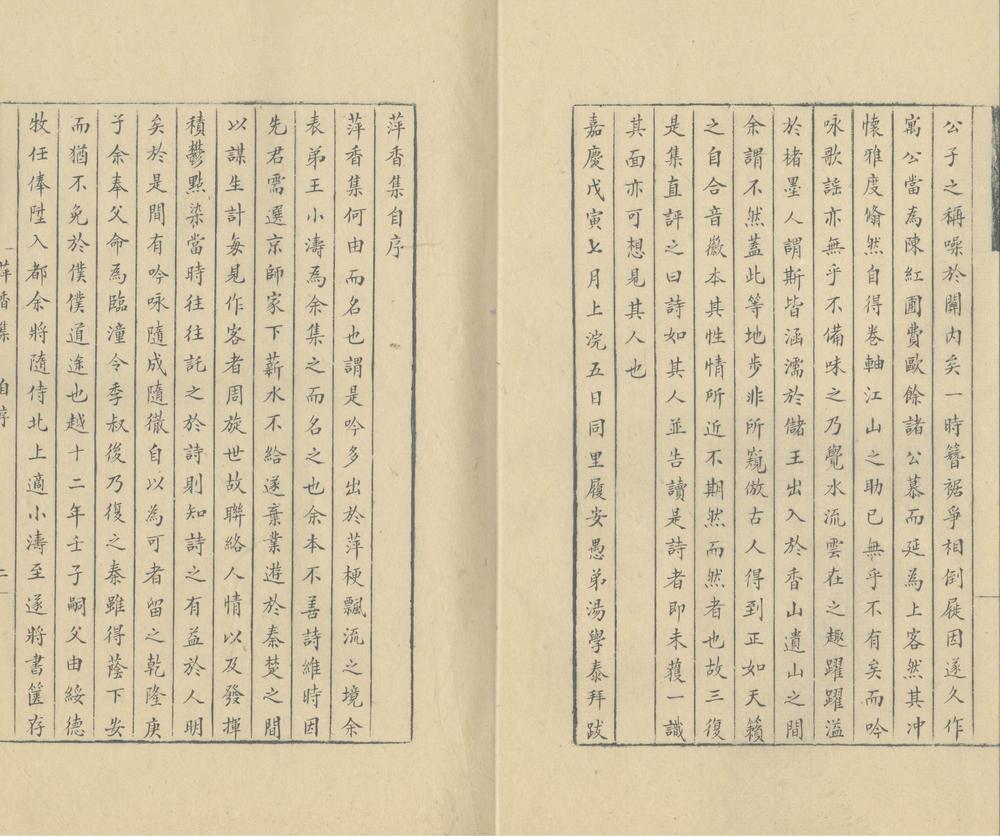 公子之稱噪於關內矣一時簪裾爭相倒屣因遂久作
寓公當為陳紅圃費歐餘諸公慕而延為上客然其冲
懷雅度翛然自得卷軸江山之助已無乎不有矣而吟
咏歌謡亦無乎不備味之乃覺水流雲在之趣躍躍溢
於楮墨人謂斯皆涵濡於儲王出入於香山遺山之間
余謂不然蓋此等地步非所窺倣古人得到正如天籟
之自合音徽本其性情所近不期然而然者也故三復
是集直評之曰詩如其人並告讀是詩者即未獲一識
其面亦可想見其人也
嘉慶戊寅七月上浣五日同里履安愚弟湯學泰拜跋
萍香集自序
萍香集何由而名也謂是吟多出於萍梗飄流之境余
表弟王小濤為余集之而名之也余本不善詩維時因
先君需選京師家下薪水不給遂棄業遊於秦楚之間
以謀生計每見作客者周旋世故聯絡人情以及發揮
積鬱點染當時往往託之於詩則知詩之有益於人明
矣於是間有吟咏隨成隨徹自以為可者留之乾隆庚
子余奉父命為臨潼令季叔後乃復之秦雖得蔭下安
而猶不免於僕僕道途也越十二年壬子嗣父由綏德
牧任俸陞入都余將隨侍北上適小濤至遂將書篋存
萍香集 自序 二